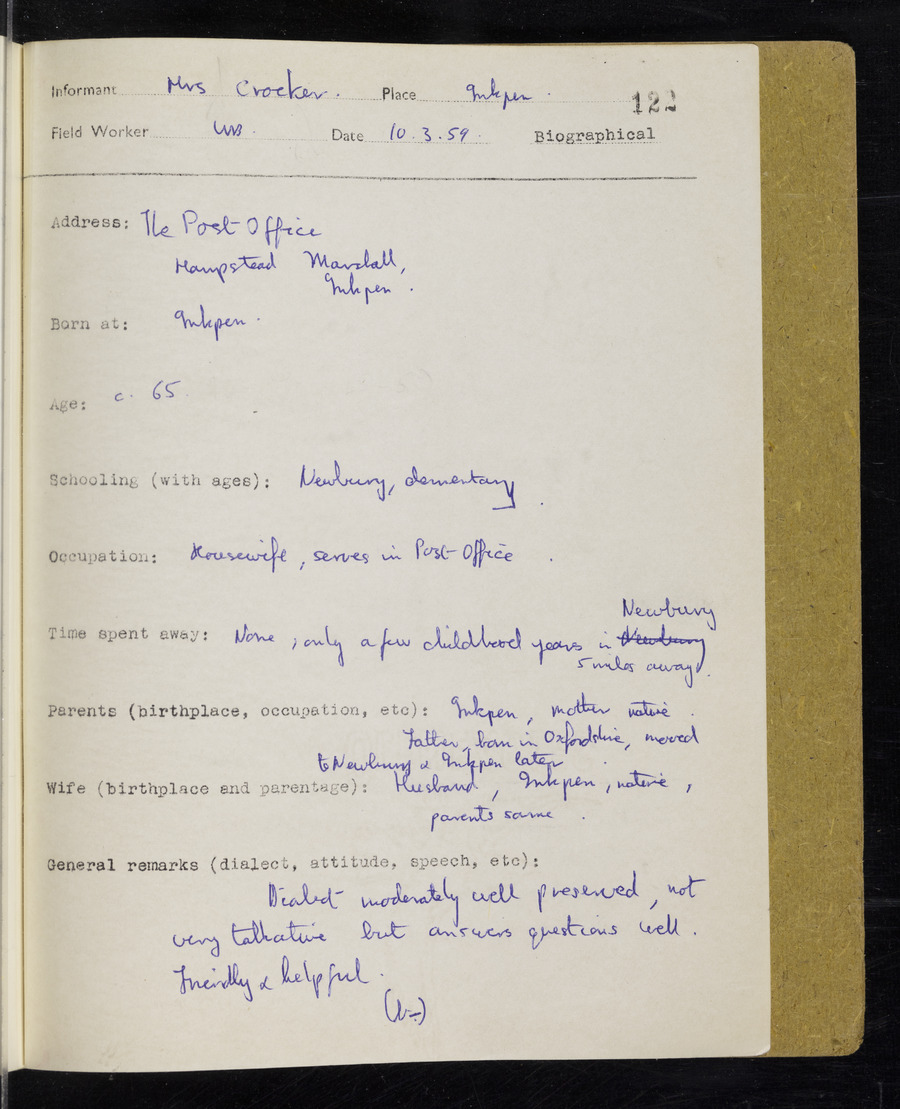 Informant Mrs Crocker. Place Inkpen. 122
Field Worker WB. Date 10.3.59. Biographical
Address: The Post Office
Hampstead Marshall,
Inkpen.
Born at: Inkpen.
Age: c. 65
Schooling (with ages): Newbury, elementary.
Occupation: Housewife, serves in Post Office.
Newbury
Time spent away: None; only a few childhood years in Newbury
5 miles away.
Parents (birthplace, occupation, etc): Inkpen, mother native.
Father, born in Oxfordshire, moved
to Newbury & Inkpen later.
Wife (birthplace and parentage): Husband, Inkpen, native,
parents same.
General remarks (dialect, attitude, speech, etc):
Dialect moderately well preserved, not
very talkative but answers questions well.
Friendly & helpful.